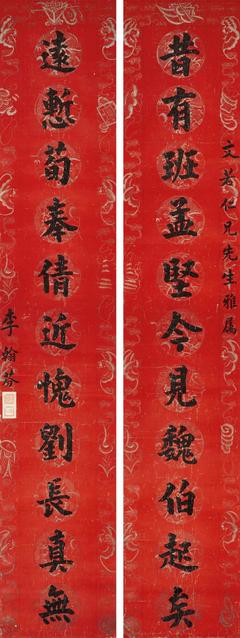 文若仁兄先生雅屬
昔有班孟堅今見魏伯起矣
遠慙荀奉倩近愧劉長真無
李翰芬